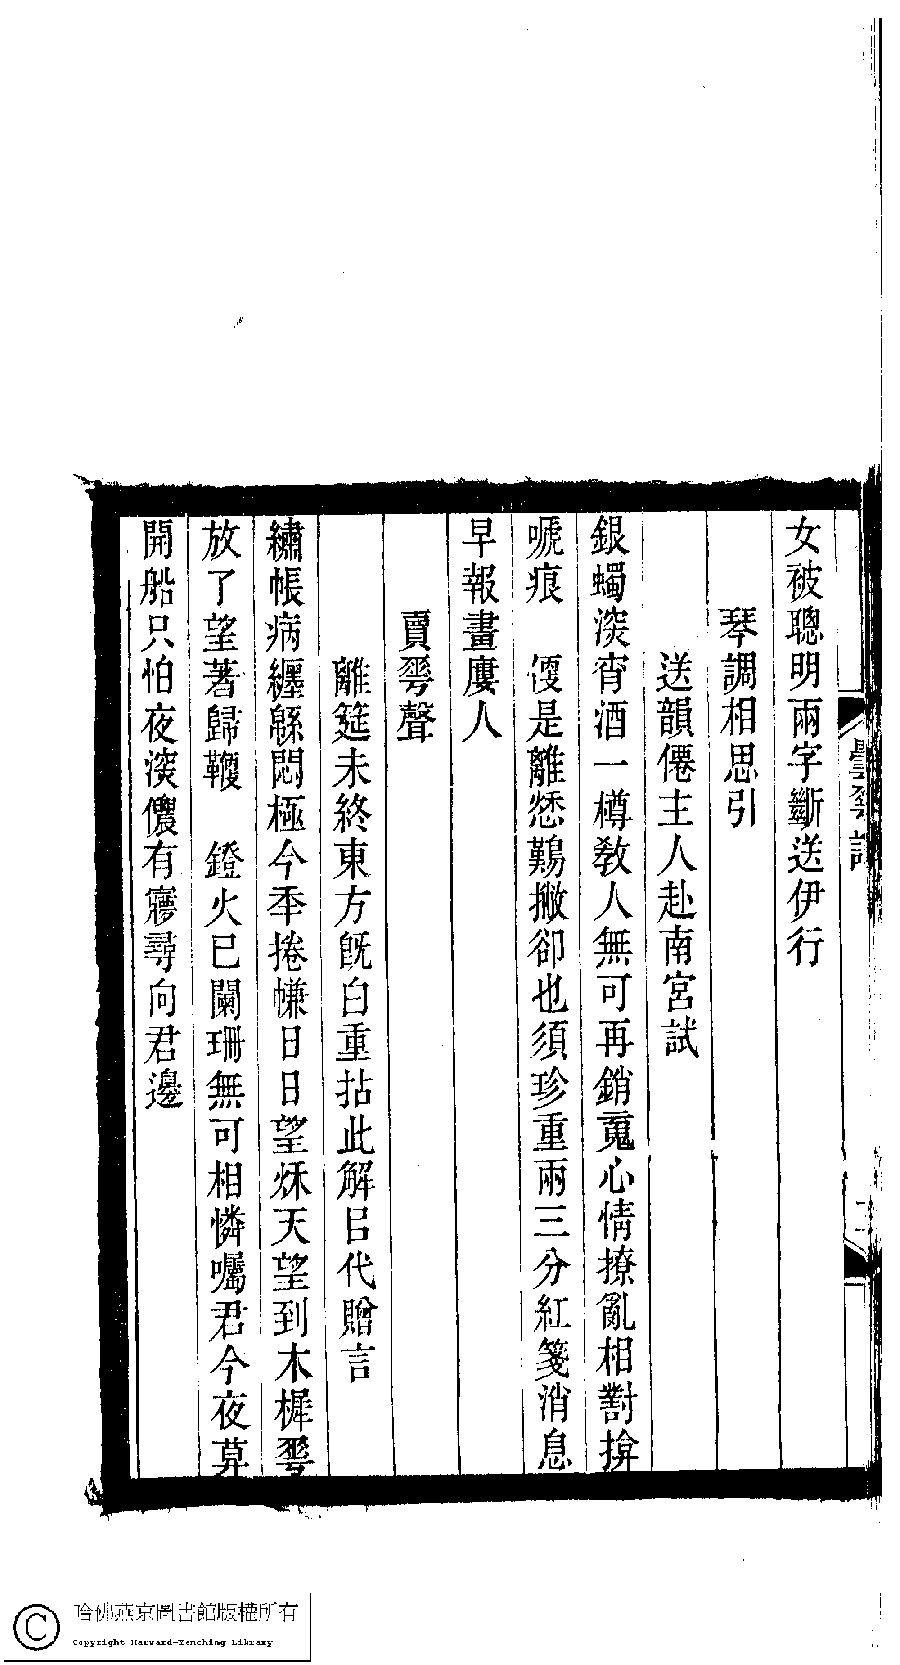 女被聰明兩字斷送伊行
琴調相思引
送韻僊主人赴南宮試
銀蠋深宵酒一樽敎人無可再銷䰟心情撩亂相對揜
嗁痕　㪅是離愁難撇卻也須珍重兩三分紅箋消息
早報畫廔人
賣䔢聲
離筵未終東方旣白重拈此解㠯代贈言
繡帳病纏緜悶極今秊捲㡘日日望烁天望到木樨䔢
放了望著歸鞭　鐙火已闌珊無可相憐囑君今夜莫
開船只怕夜深儂有㝱尋向君邊
二
哈佛燕京圖書館版權所有
Copyright Harvard-Yenching Library